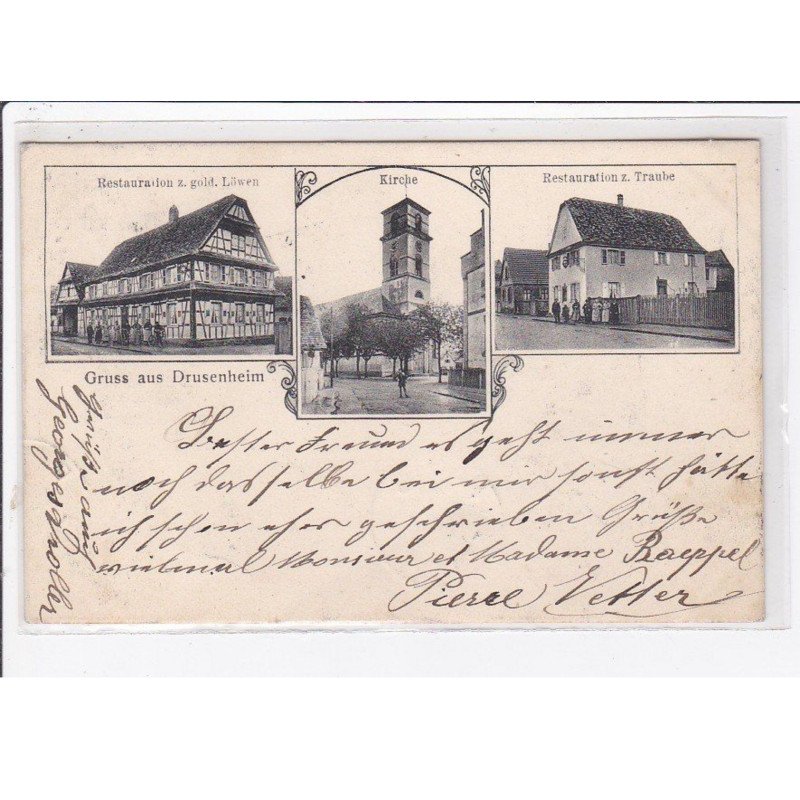 Restauration z. gold. Löwen
Kirche
Restauration z. Traube
Gruss aus Drusenheim
Bester Freund es geht immer
noch dasselbe bei mir sonst hätte
ich schon eher geschrieben Grüße
vielmal Monsieur et Madame Raeppel
Pierre Vetter
Grüße auch
Georges